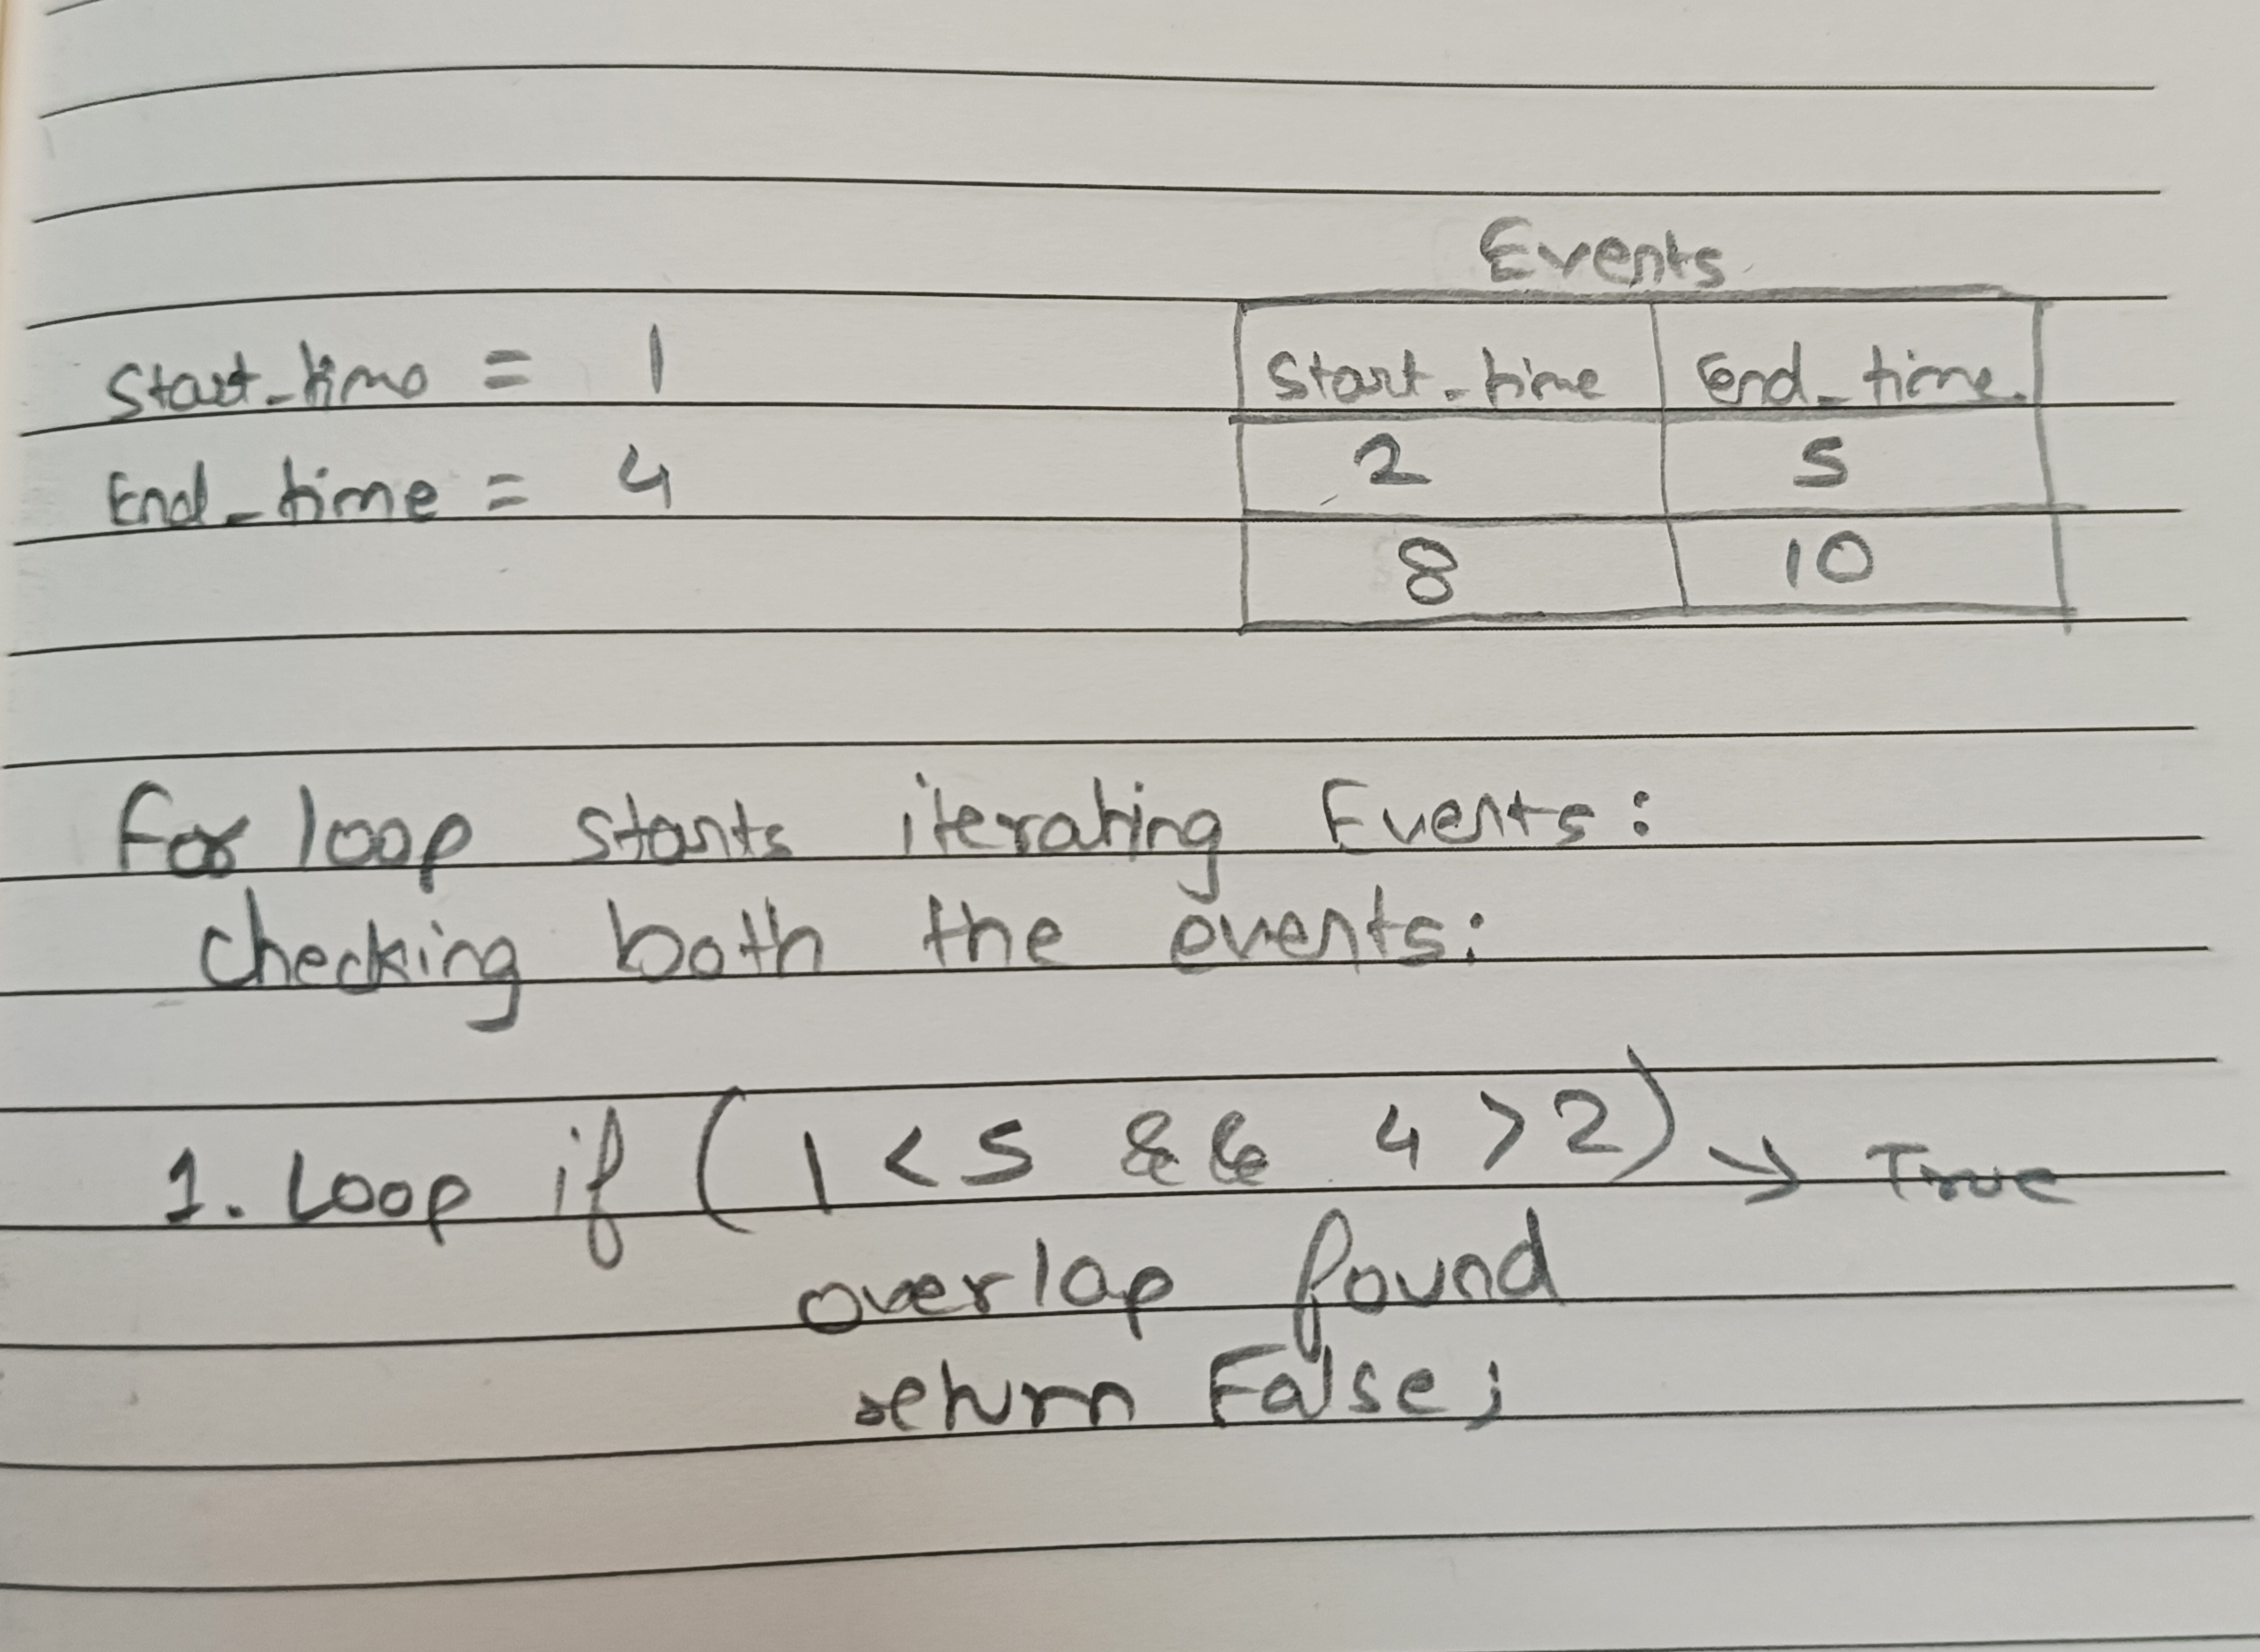 Events
Start_time = 1
Start_time End_time.
End_time = 4
2 5
8 10
For loop starts iterating Events:
checking both the events:
1. Loop if (1 < 5 && 4 > 2) → True
overlap found
return False;